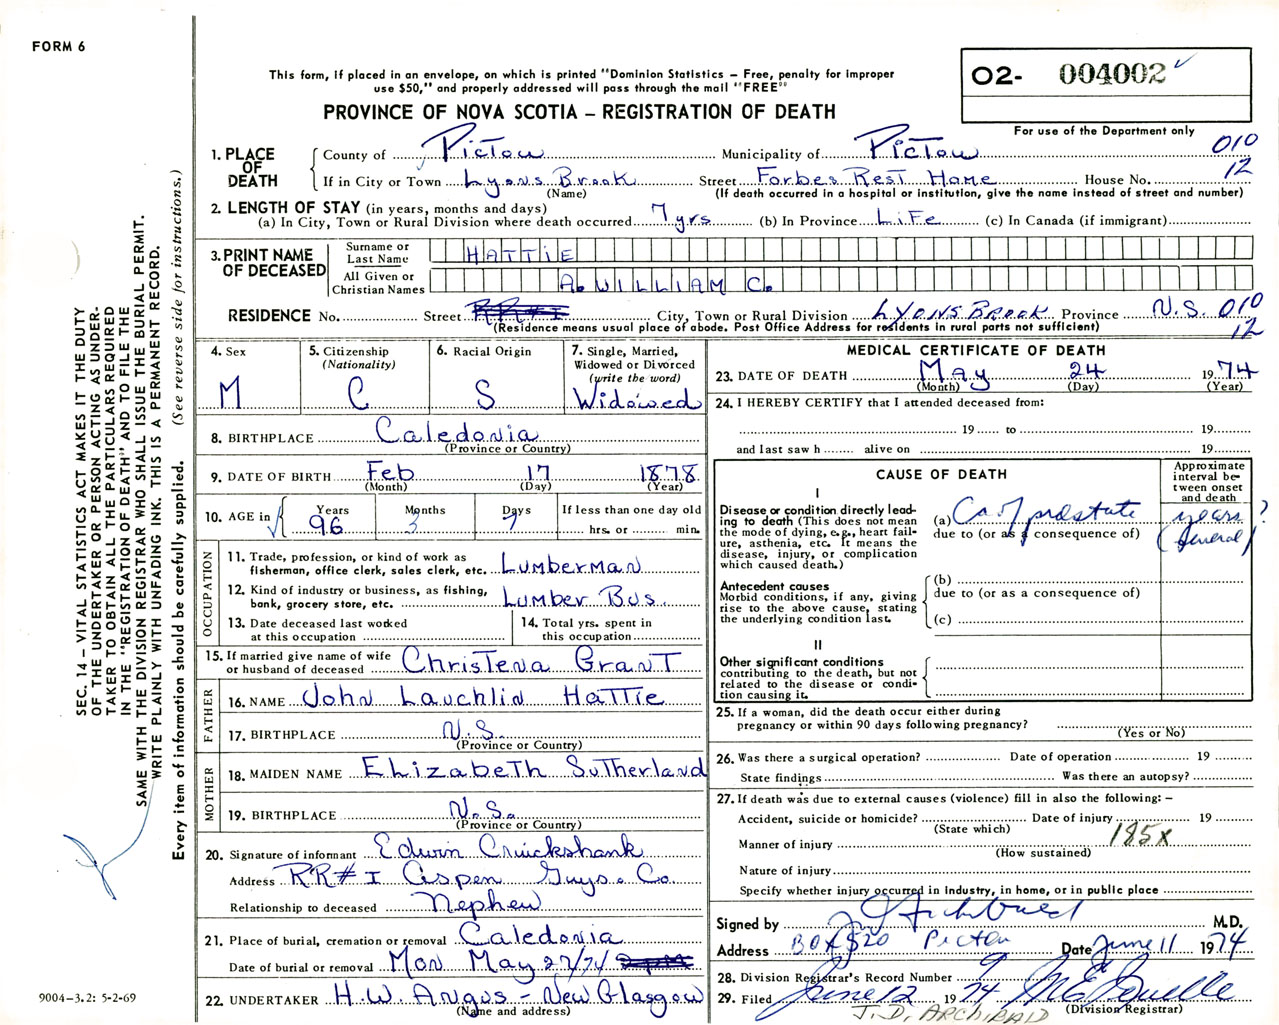 FORM 6
02- 004002
This form, if placed in an envelope, on which is printed "Dominion Statistics – Free, penalty for improper
use $50," and properly addressed will pass through the mail "FREE"
PROVINCE OF NOVA SCOTIA – REGISTRATION OF DEATH
For use of the Department only
1. PLACE OF DEATH County of Pictou Municipality of Pictou 010
If in City or Town Lyons Brook Street Forbes Rest Home House No. 12
(Name) (If death occurred in a hospital or institution, give the name instead of street and number)
2. LENGTH OF STAY (in years, months and days)
(a) In City, Town or Rural Division where death occurred 7 yrs (b) In Province Life (c) In Canada (if immigrant)
3. PRINT NAME OF DECEASED Surname or Last Name HATTIE
All Given or Christian Names A. WILLIAM C.
RESIDENCE No. Street RR#1 City, Town or Rural Division Lyons Brook Province N.S. 010
(Residence means usual place of abode. Post Office Address for residents in rural parts not sufficient) 12
4. Sex M
5. Citizenship (Nationality) C
6. Racial Origin S
7. Single, Married, Widowed or Divorced (write the word) Widowed
8. BIRTHPLACE Caledonia
(Province or Country)
9. DATE OF BIRTH Feb 17 1878
(Month) (Day) (Year)
10. AGE in Years 96 Months 3 Days 7 If less than one day old
hrs. or min.
OCCUPATION
11. Trade, profession, or kind of work as
fisherman, office clerk, sales clerk, etc. Lumberman
12. Kind of industry or business, as fishing,
bank, grocery store, etc. Lumber Bus.
13. Date deceased last worked
at this occupation
14. Total yrs. spent in
this occupation
15. If married give name of wife
or husband of deceased Christena Grant
FATHER
16. NAME John Lauchlin Hattie
17. BIRTHPLACE N.S.
(Province or Country)
MOTHER
18. MAIDEN NAME Elizabeth Sutherland
19. BIRTHPLACE N.S.
(Province or Country)
20. Signature of informant Edwin Cruickshank
Address RR#1 Aspen Guys. Co.
Relationship to deceased Nephew
21. Place of burial, cremation or removal Caledonia
Date of burial or removal Mon May 27/74
22. UNDERTAKER H.W. Angus – New Glasgow
(Name and address)
MEDICAL CERTIFICATE OF DEATH
23. DATE OF DEATH May 24 1974
(Month) (Day) (Year)
24. I HEREBY CERTIFY that I attended deceased from:
19 to 19
and last saw h alive on 19
CAUSE OF DEATH
Approximate interval between onset and death
I
Disease or condition directly leading to death (This does not mean the mode of dying, e.g., heart failure, asthenia, etc. It means the disease, injury, or complication which caused death.)
(a) Ca of prostate years ?
due to (or as a consequence of)
Antecedent causes
Morbid conditions, if any, giving rise to the above cause, stating the underlying condition last.
(b)
due to (or as a consequence of)
(c)
II
Other significant conditions
contributing to the death, but not
related to the disease or condition causing it.
25. If a woman, did the death occur either during
pregnancy or within 90 days following pregnancy?
(Yes or No)
26. Was there a surgical operation? Date of operation 19
State findings Was there an autopsy?
27. If death was due to external causes (violence) fill in also the following: –
Accident, suicide or homicide? Date of injury 19
(State which) 185X
Manner of injury
(How sustained)
Nature of injury
Specify whether injury occurred in industry, in home, or in public place
Signed by J D Archibald M.D.
Address Box 520 Pictou Date June 11 1974
28. Division Registrar's Record Number 9
29. Filed June 12 1974
(Division Registrar)
J. D. ARCHIBALD
SEC. 14 – VITAL STATISTICS ACT MAKES IT THE DUTY
OF THE UNDERTAKER OR PERSON ACTING AS UNDER-
TAKER TO OBTAIN ALL THE PARTICULARS REQUIRED
IN THE "REGISTRATION OF DEATH" AND TO FILE THE
SAME WITH THE DIVISION REGISTRAR WHO SHALL ISSUE THE BURIAL PERMIT.
WRITE PLAINLY WITH UNFADING INK. THIS IS A PERMANENT RECORD.
Every item of information should be carefully supplied. (See reverse side for instructions.)
9004-3.2: 5-2-69